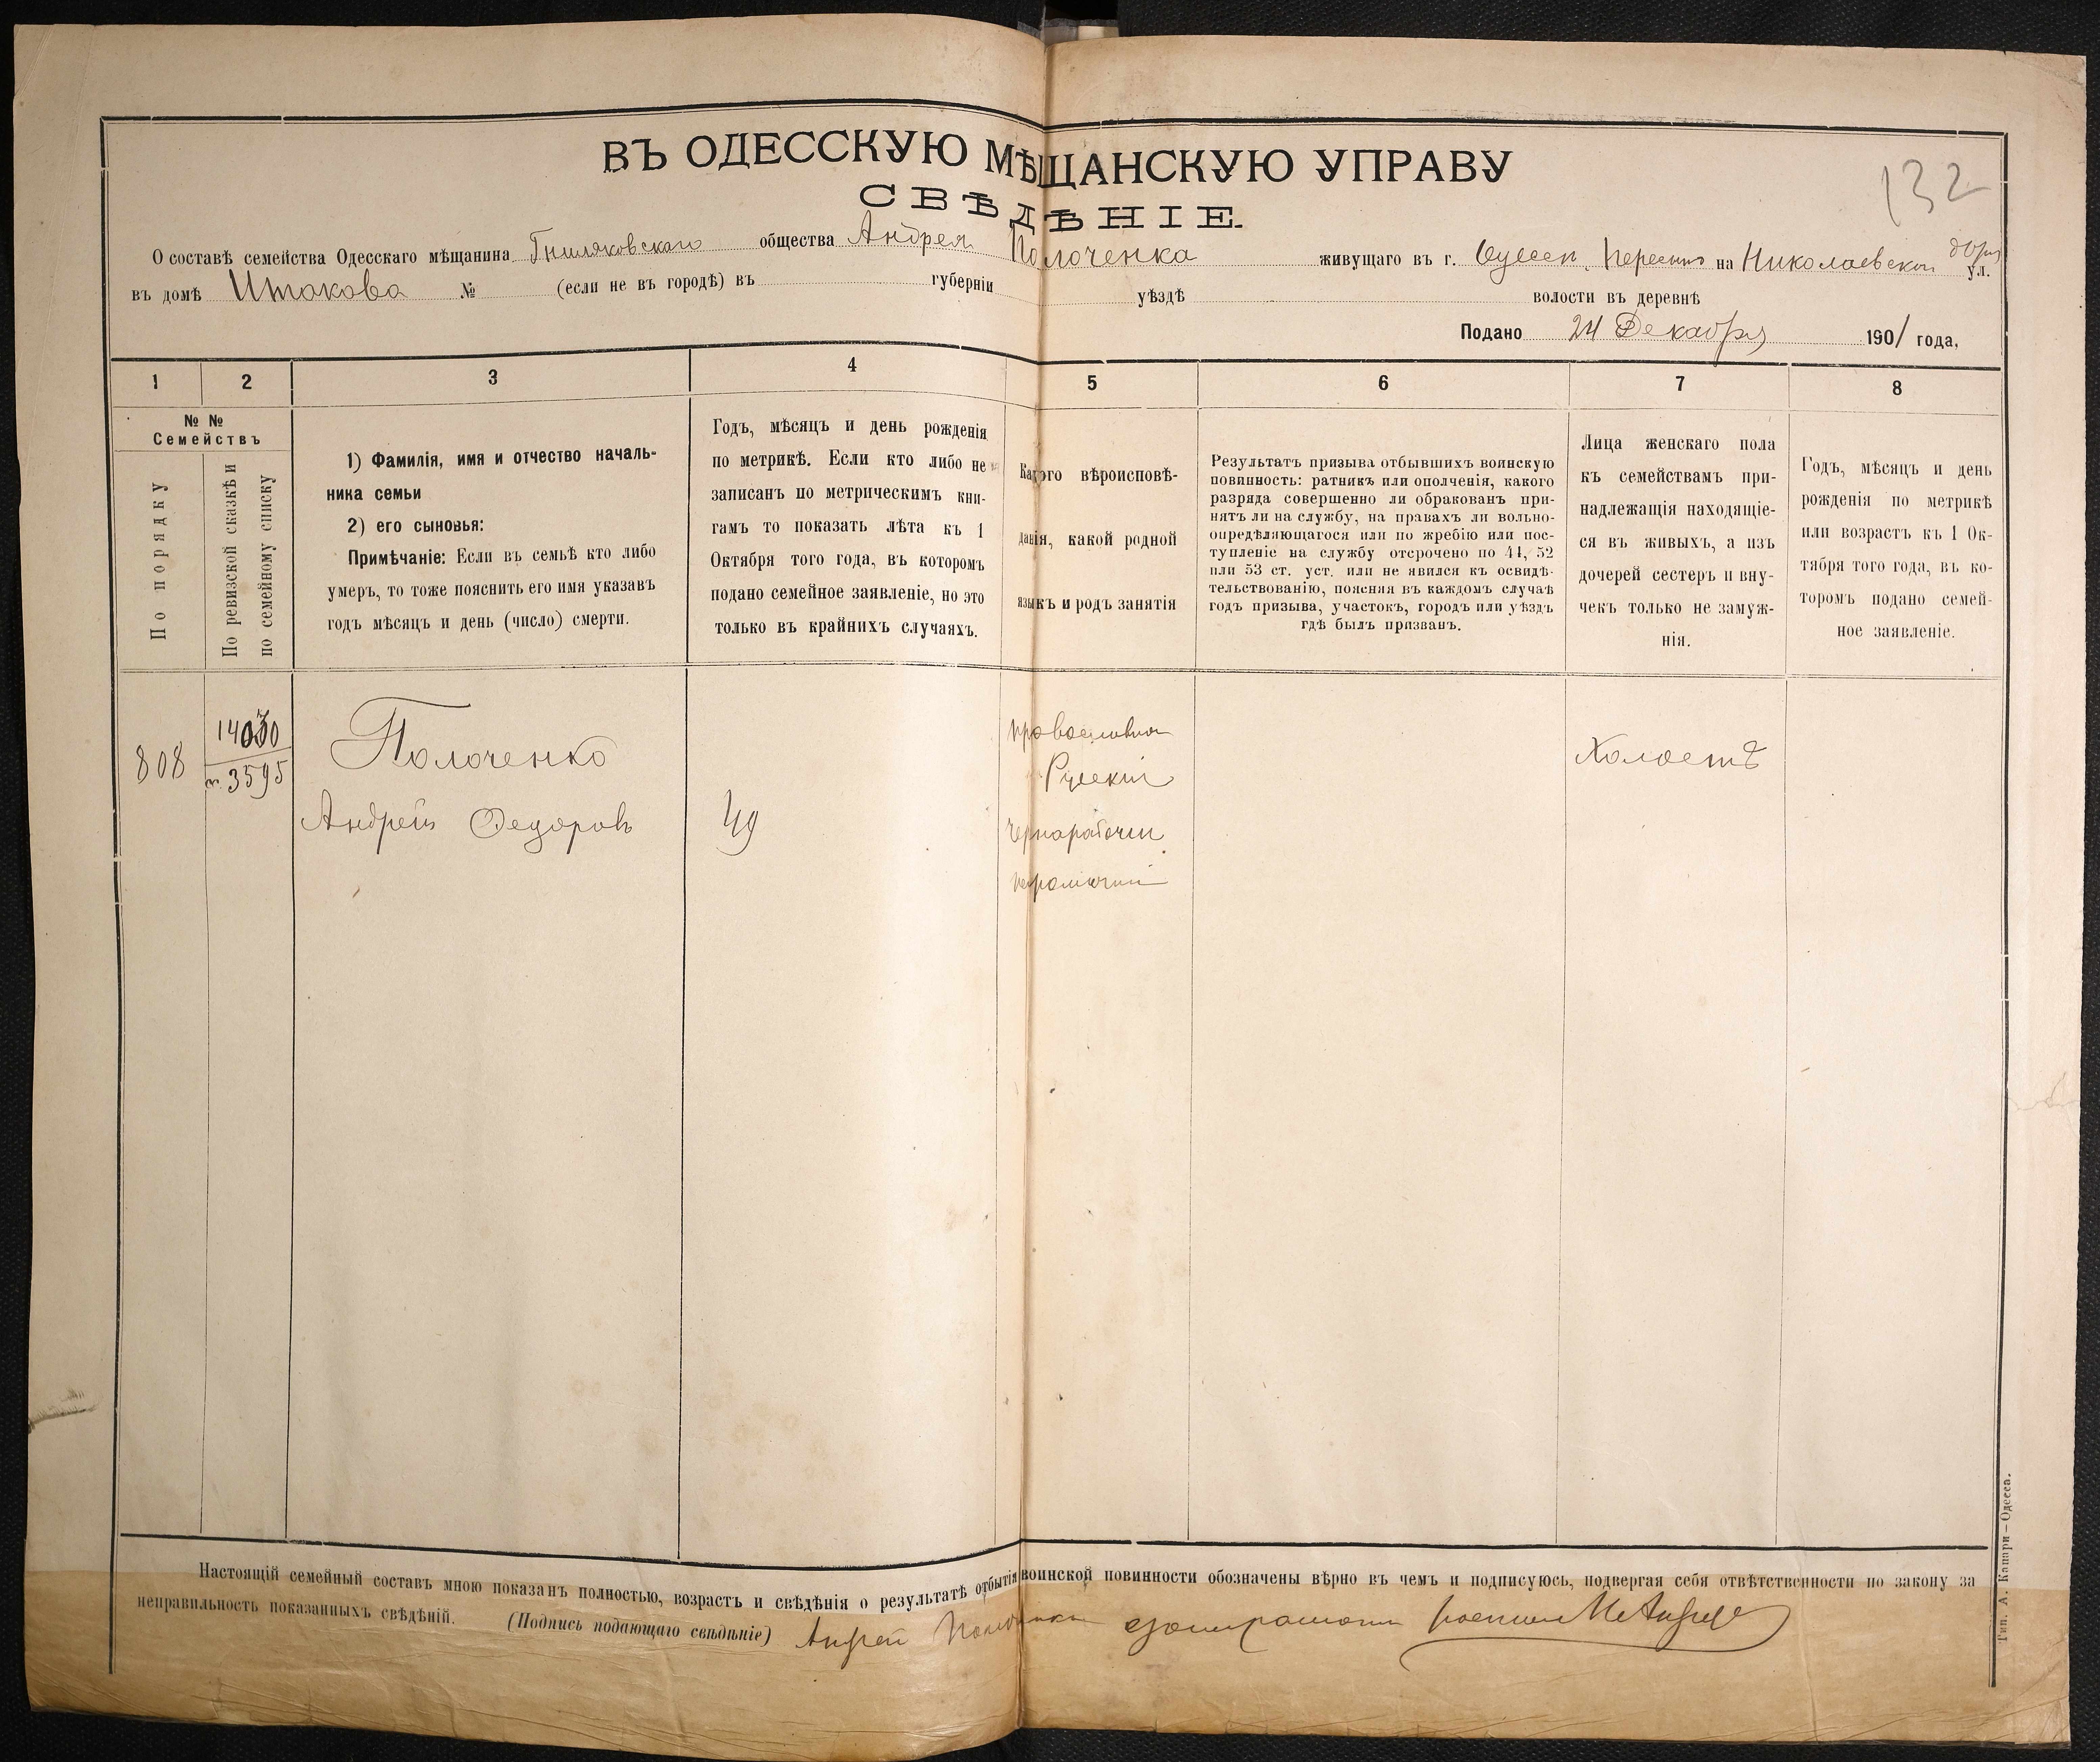 132
ВЪ ОДЕССКУЮ МѢЩАНСКУЮ УПРАВУ
СВѢДѢНІЕ.
О составѣ семейства Одесскаго мѣщанина Гниляковскаго общества Андрея Полоченка живущаго въ г. Одессѣ, Пересыпь на Николаевской дор. ул.
въ домѣ № (если не въ городѣ) въ губерніи уѣздѣ волости въ деревнѣ
Подано 24 Декабря 1901 года,
1 2 3 4 5 6 7 8
№ №
Семействъ
По порядку
По ревизской сказкѣ и
по семейному списку
1) Фамилія, имя и отчество началь-
ника семьи
2) его сыновья:
Примѣчаніе: Если въ семьѣ кто либо
умеръ, то тоже пояснить его имя указавъ
годъ мѣсяцъ и день (число) смерти.
Годъ, мѣсяцъ и день рожденія
по метрикѣ. Если кто либо не
записанъ по метрическимъ кни-
гамъ то показать лѣта къ 1
Октября того года, въ которомъ
подано семейное заявленіе, но это
только въ крайнихъ случаяхъ.
Какого вѣроисповѣ-
данія, какой родной
языкъ и родъ занятія
Результатъ призыва отбывшихъ воинскую
повинность: ратникъ или ополченія, какого
разряда совершенно ли обракованъ при-
нятъ ли на службу, на правахъ ли вольно-
опредѣляющагося или по жребію или пос-
тупленіе на службу отсрочено по 44, 52
или 53 ст. уст. или не явился къ освидѣ-
тельствованію, поясняя въ каждомъ случаѣ
годъ призыва, участокъ, городъ или уѣздъ
гдѣ былъ призванъ.
Лица женскаго пола
къ семействамъ при-
надлежащія находящіе-
ся въ живыхъ, а изъ
дочерей сестеръ и вну-
чекъ только не замуж-
нія.
Годъ, мѣсяцъ и день
рожденія по метрикѣ
или возрастъ къ 1 Ок-
тября того года, въ ко-
торомъ подано семей-
ное заявленіе.
808
14030
3595
Полоченко
Андрей Федоровъ
49
православной
Русскій
чернорабочій
неграмотный
Холостъ
Настоящій семейный составъ мною показанъ полностью, возрастъ и свѣдѣнія о результатѣ отбытія воинской повинности обозначены вѣрно въ чемъ и подписуюсь, подвергая себя отвѣтственности по закону за
неправильность показанныхъ свѣдѣній. (Подпись подающаго свѣдѣніе) Андрей Полоченко
Тип. А. Капари—Одесса.